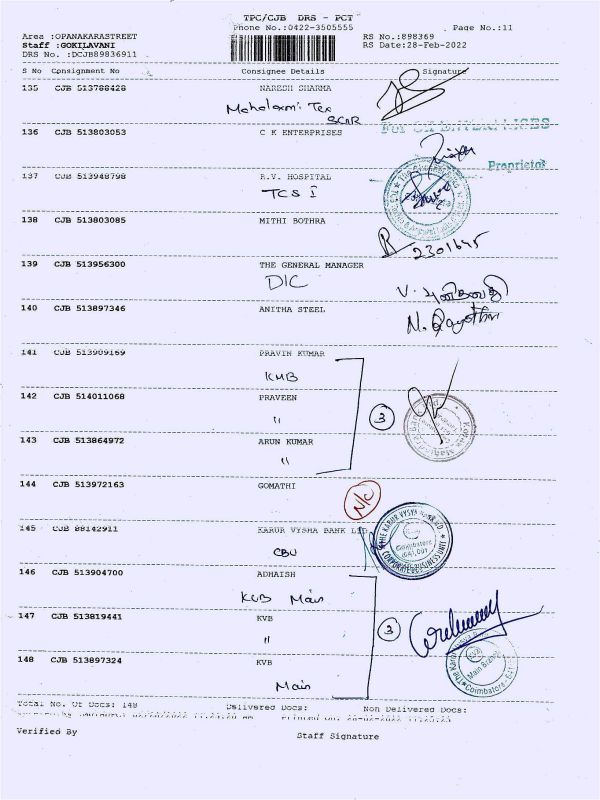 TPC/CJB DRS - PCT
Phone No.:0422-3505555
Page No.:11
Area :OPANAKARASTREET
RS No.:898369
Staff :GOKILAVANI
RS Date:28-Feb-2022
DRS No. :DCJB89836911
S No Consignment No Consignee Details Signature
135 CJB 513788428 NARESH SHARMA
Mahalaxmi Tex
136 CJB 513803053 C K ENTERPRISES
Proprietor
137 CJB 513948798 R.V. HOSPITAL
TCS I
138 CJB 513803085 MITHI BOTHRA
2301645
139 CJB 513956300 THE GENERAL MANAGER
DIC
140 CJB 513897346 ANITHA STEEL
141 CJB 513909169 PRAVIN KUMAR
KMB
142 CJB 514011068 PRAVEEN
"
3
143 CJB 513864972 ARUN KUMAR
"
144 CJB 513972163 GOMATHI
N/C
145 CJB 88142911 KARUR VYSHA BANK LTD
CBU
THE KARUR VYSYA BANK LTD
Coimbatore
641 001
CORPORATE BUSINESS UNIT
146 CJB 513904700 ADHAISH
KVB Main
147 CJB 513819441 KVB
"
3
148 CJB 513897324 KVB
Main
Main Branch
Coimbatore
Total No. Of Docs: 148 Delivered Docs: Non Delivered Docs:
Verified By
Staff Signature